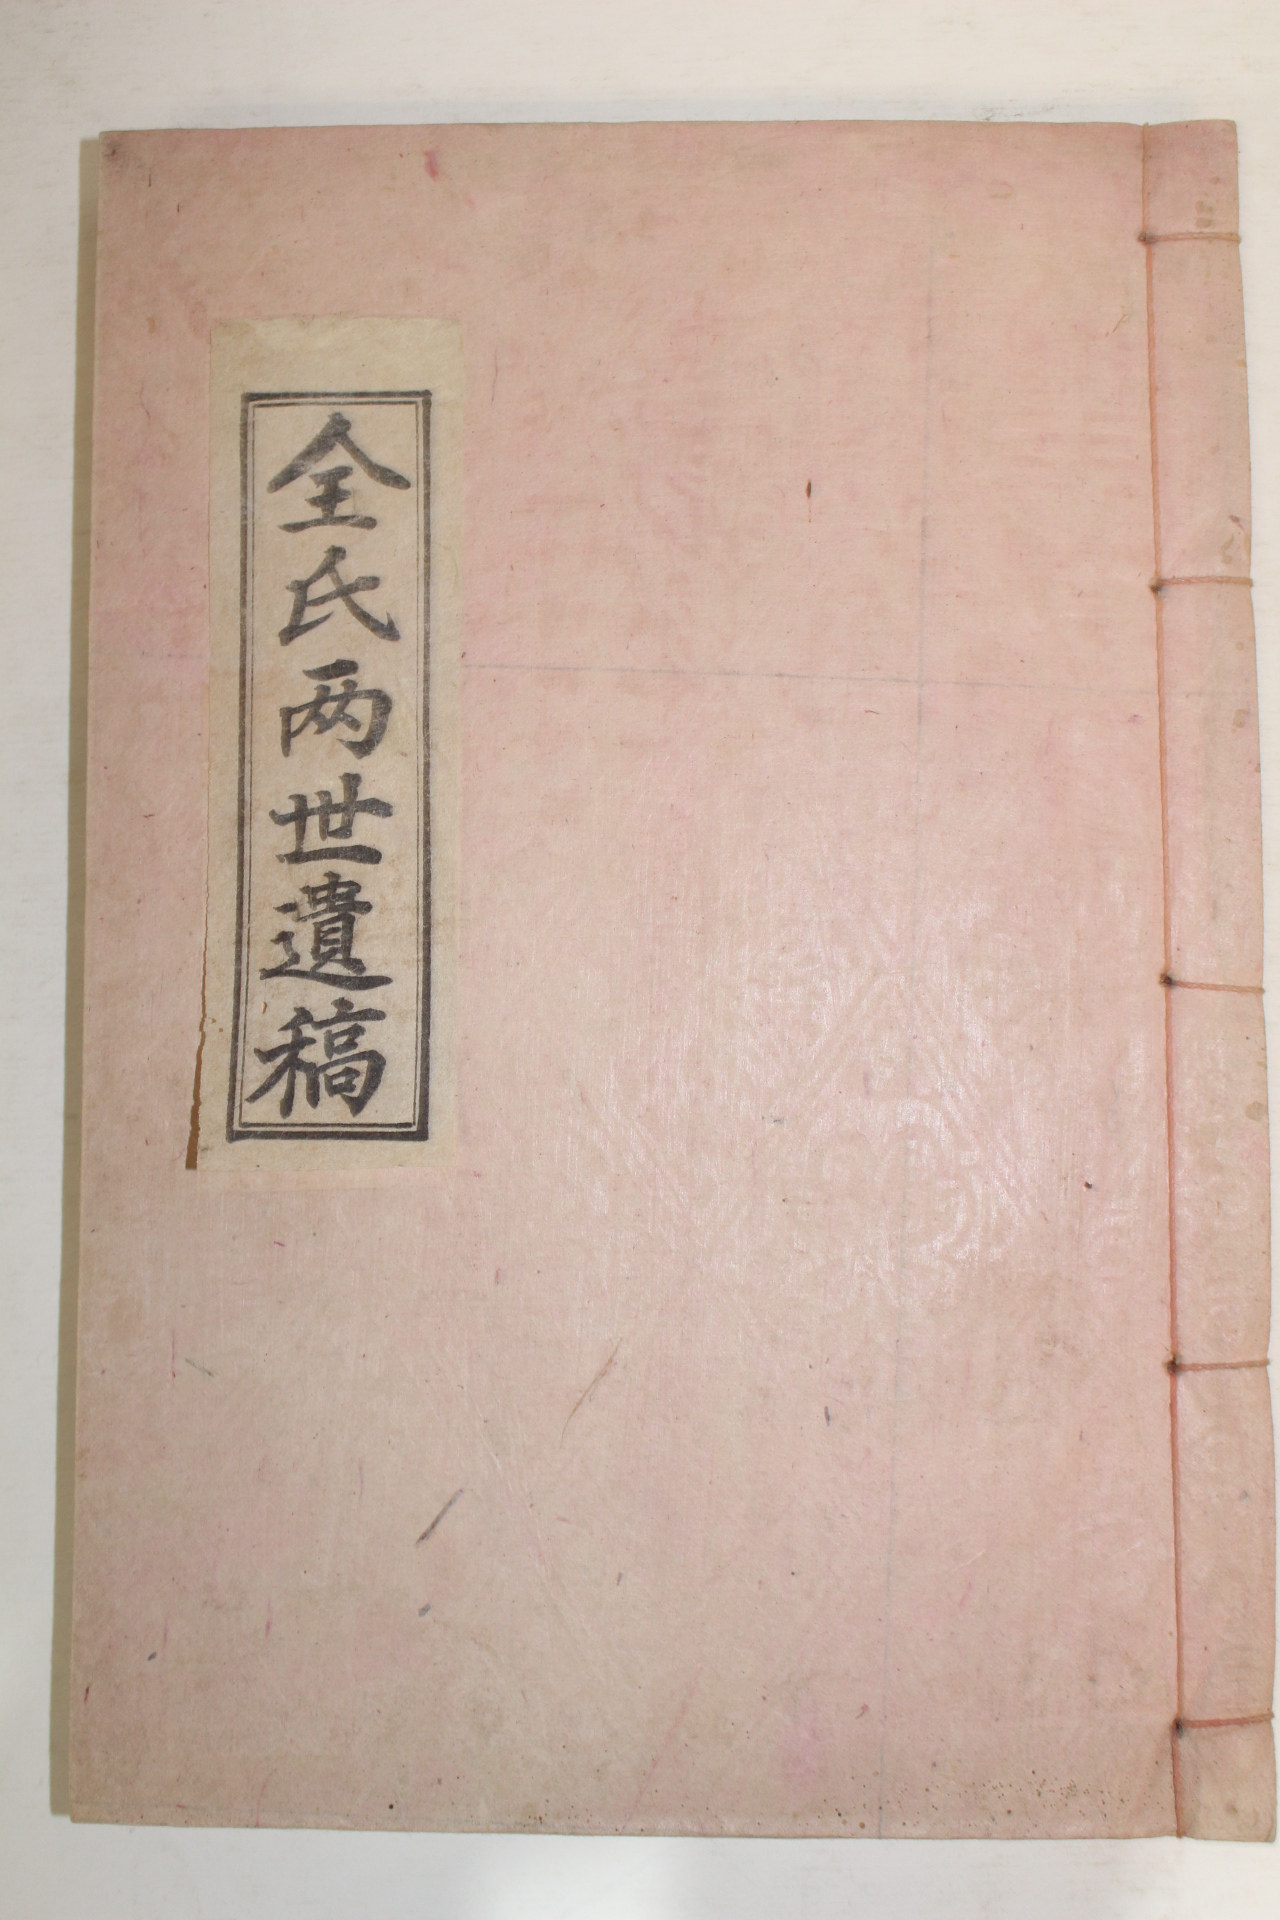 全氏两世遺稿